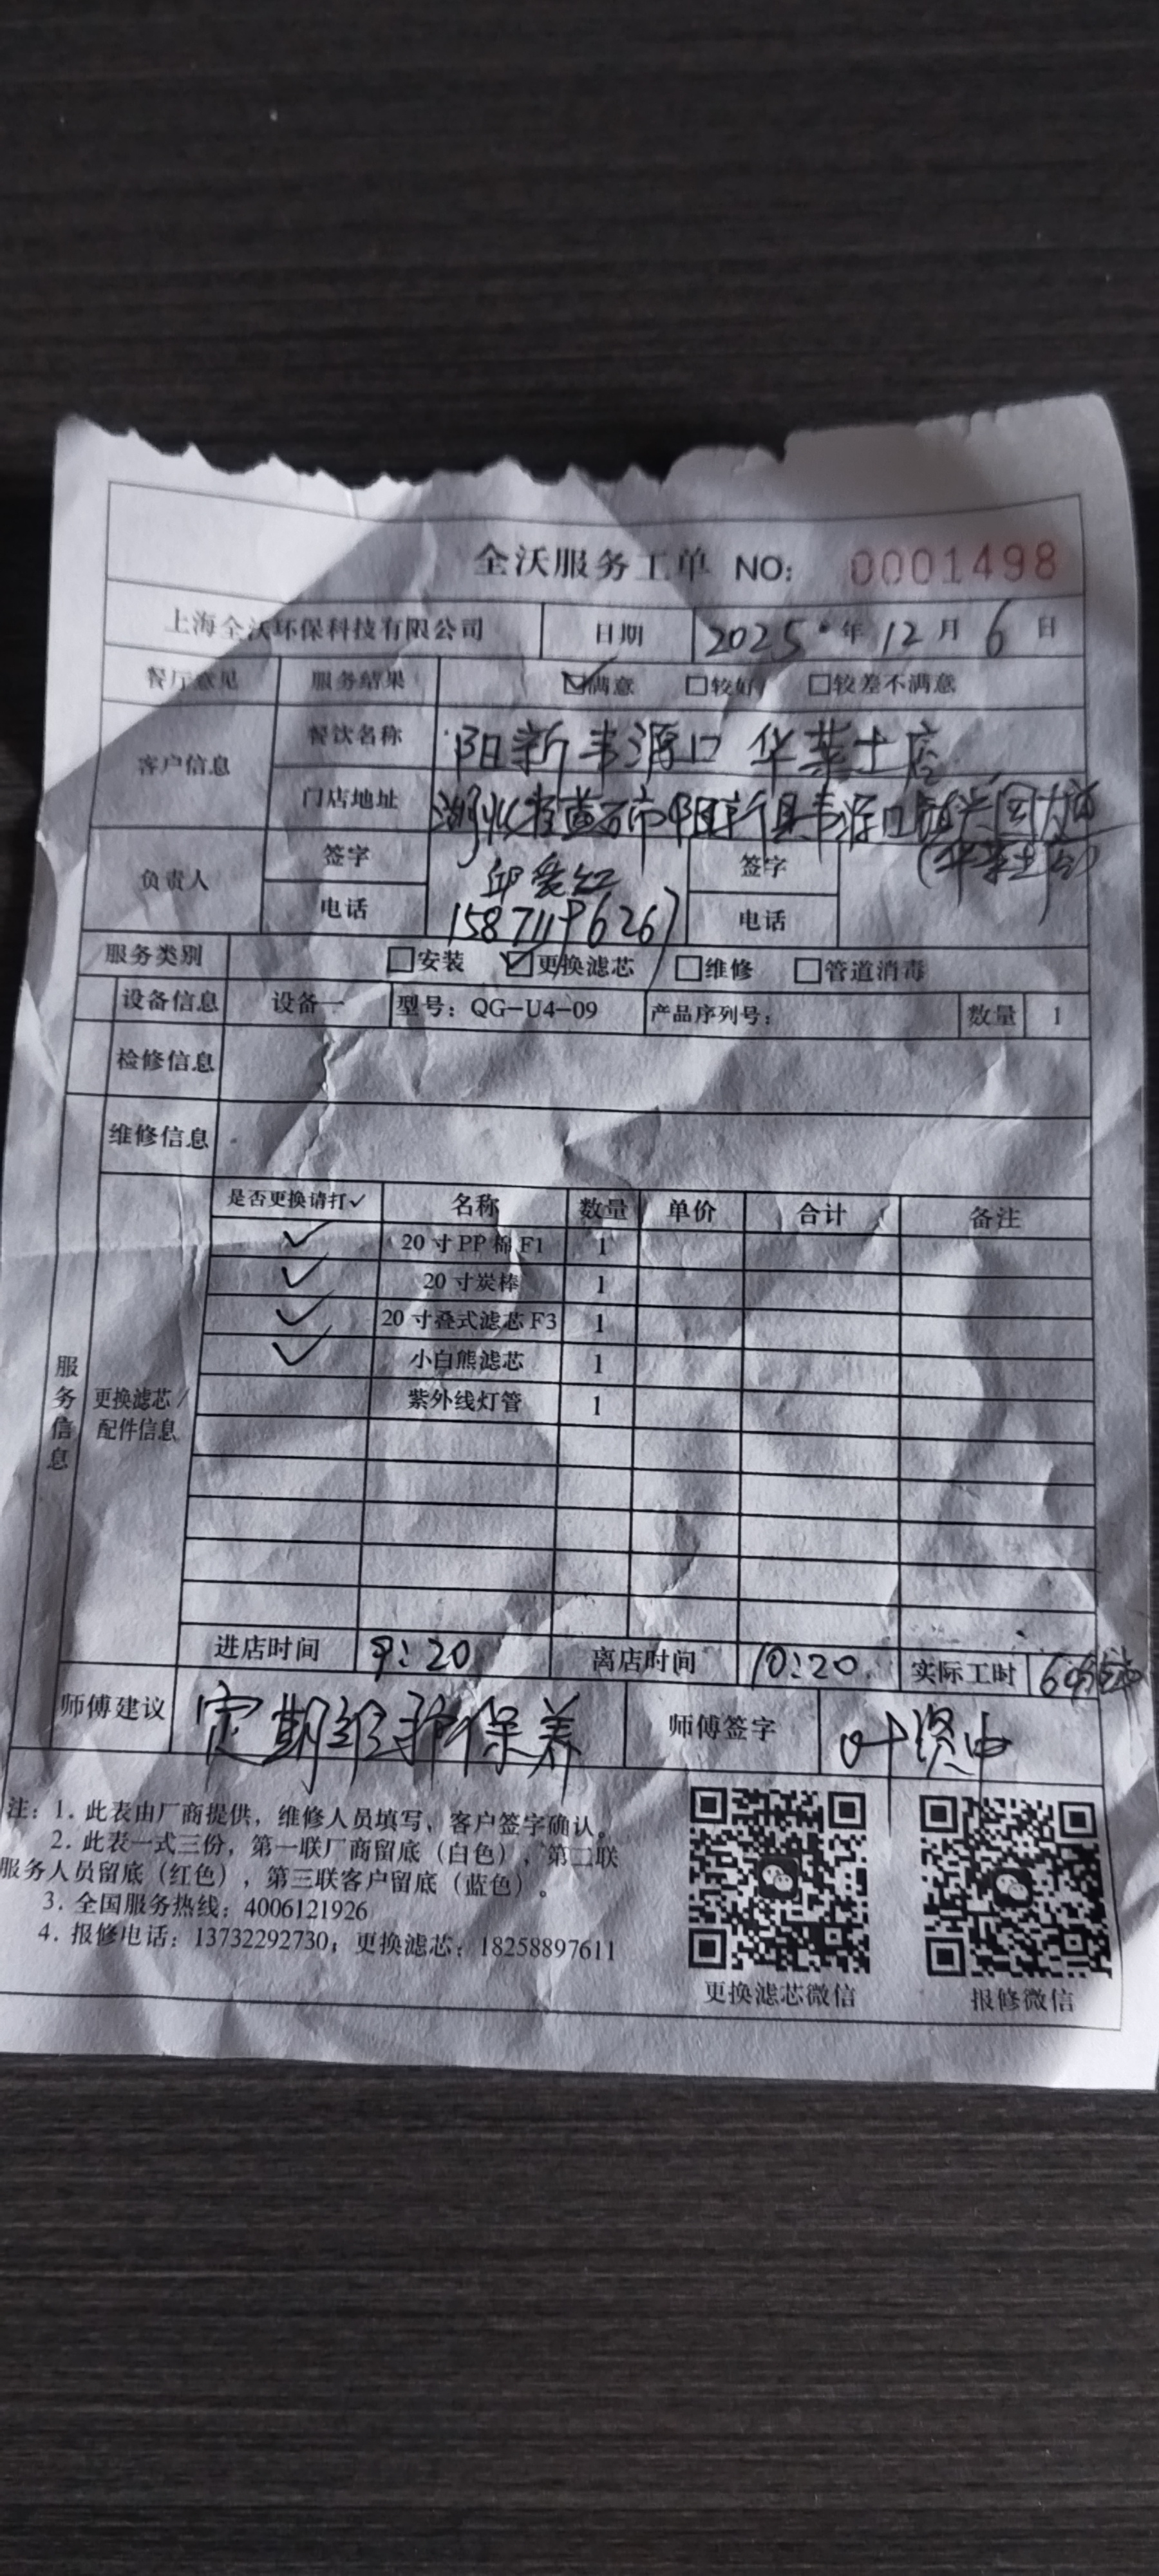 全沃服务工单 NO: 0001498
上海全沃环保科技有限公司 日期 2025年12月6日
餐厅意见 服务结果 ☑满意 □较好 □较差不满意
客户信息 餐饮名称 阳新韦源口华莱士店
门店地址 湖北省黄石市阳新县韦源口镇兴国大道
(华莱士店)
负责人 签字 邱爱红 签字
电话 15871196267 电话
服务类别 □安装 ☑更换滤芯 □维修 □管道消毒
设备信息 设备一 型号：QG-U4-09 产品序列号： 数量 1
检修信息
维修信息
服务信息
更换滤芯/配件信息
是否更换请打✓ 名称 数量 单价 合计 备注
✓ 20寸PP棉F1 1
✓ 20寸炭棒 1
✓ 20寸叠式滤芯F3 1
✓ 小白熊滤芯 1
紫外线灯管 1
进店时间 9:20 离店时间 10:20 实际工时 60分钟
师傅建议 定期维护保养 师傅签字 叶
注：1. 此表由厂商提供，维修人员填写，客户签字确认。
2. 此表一式三份，第一联厂商留底（白色），第二联
服务人员留底（红色），第三联客户留底（蓝色）。
3. 全国服务热线：4006121926
4. 报修电话：13732292730；更换滤芯：18258897611
更换滤芯微信 报修微信